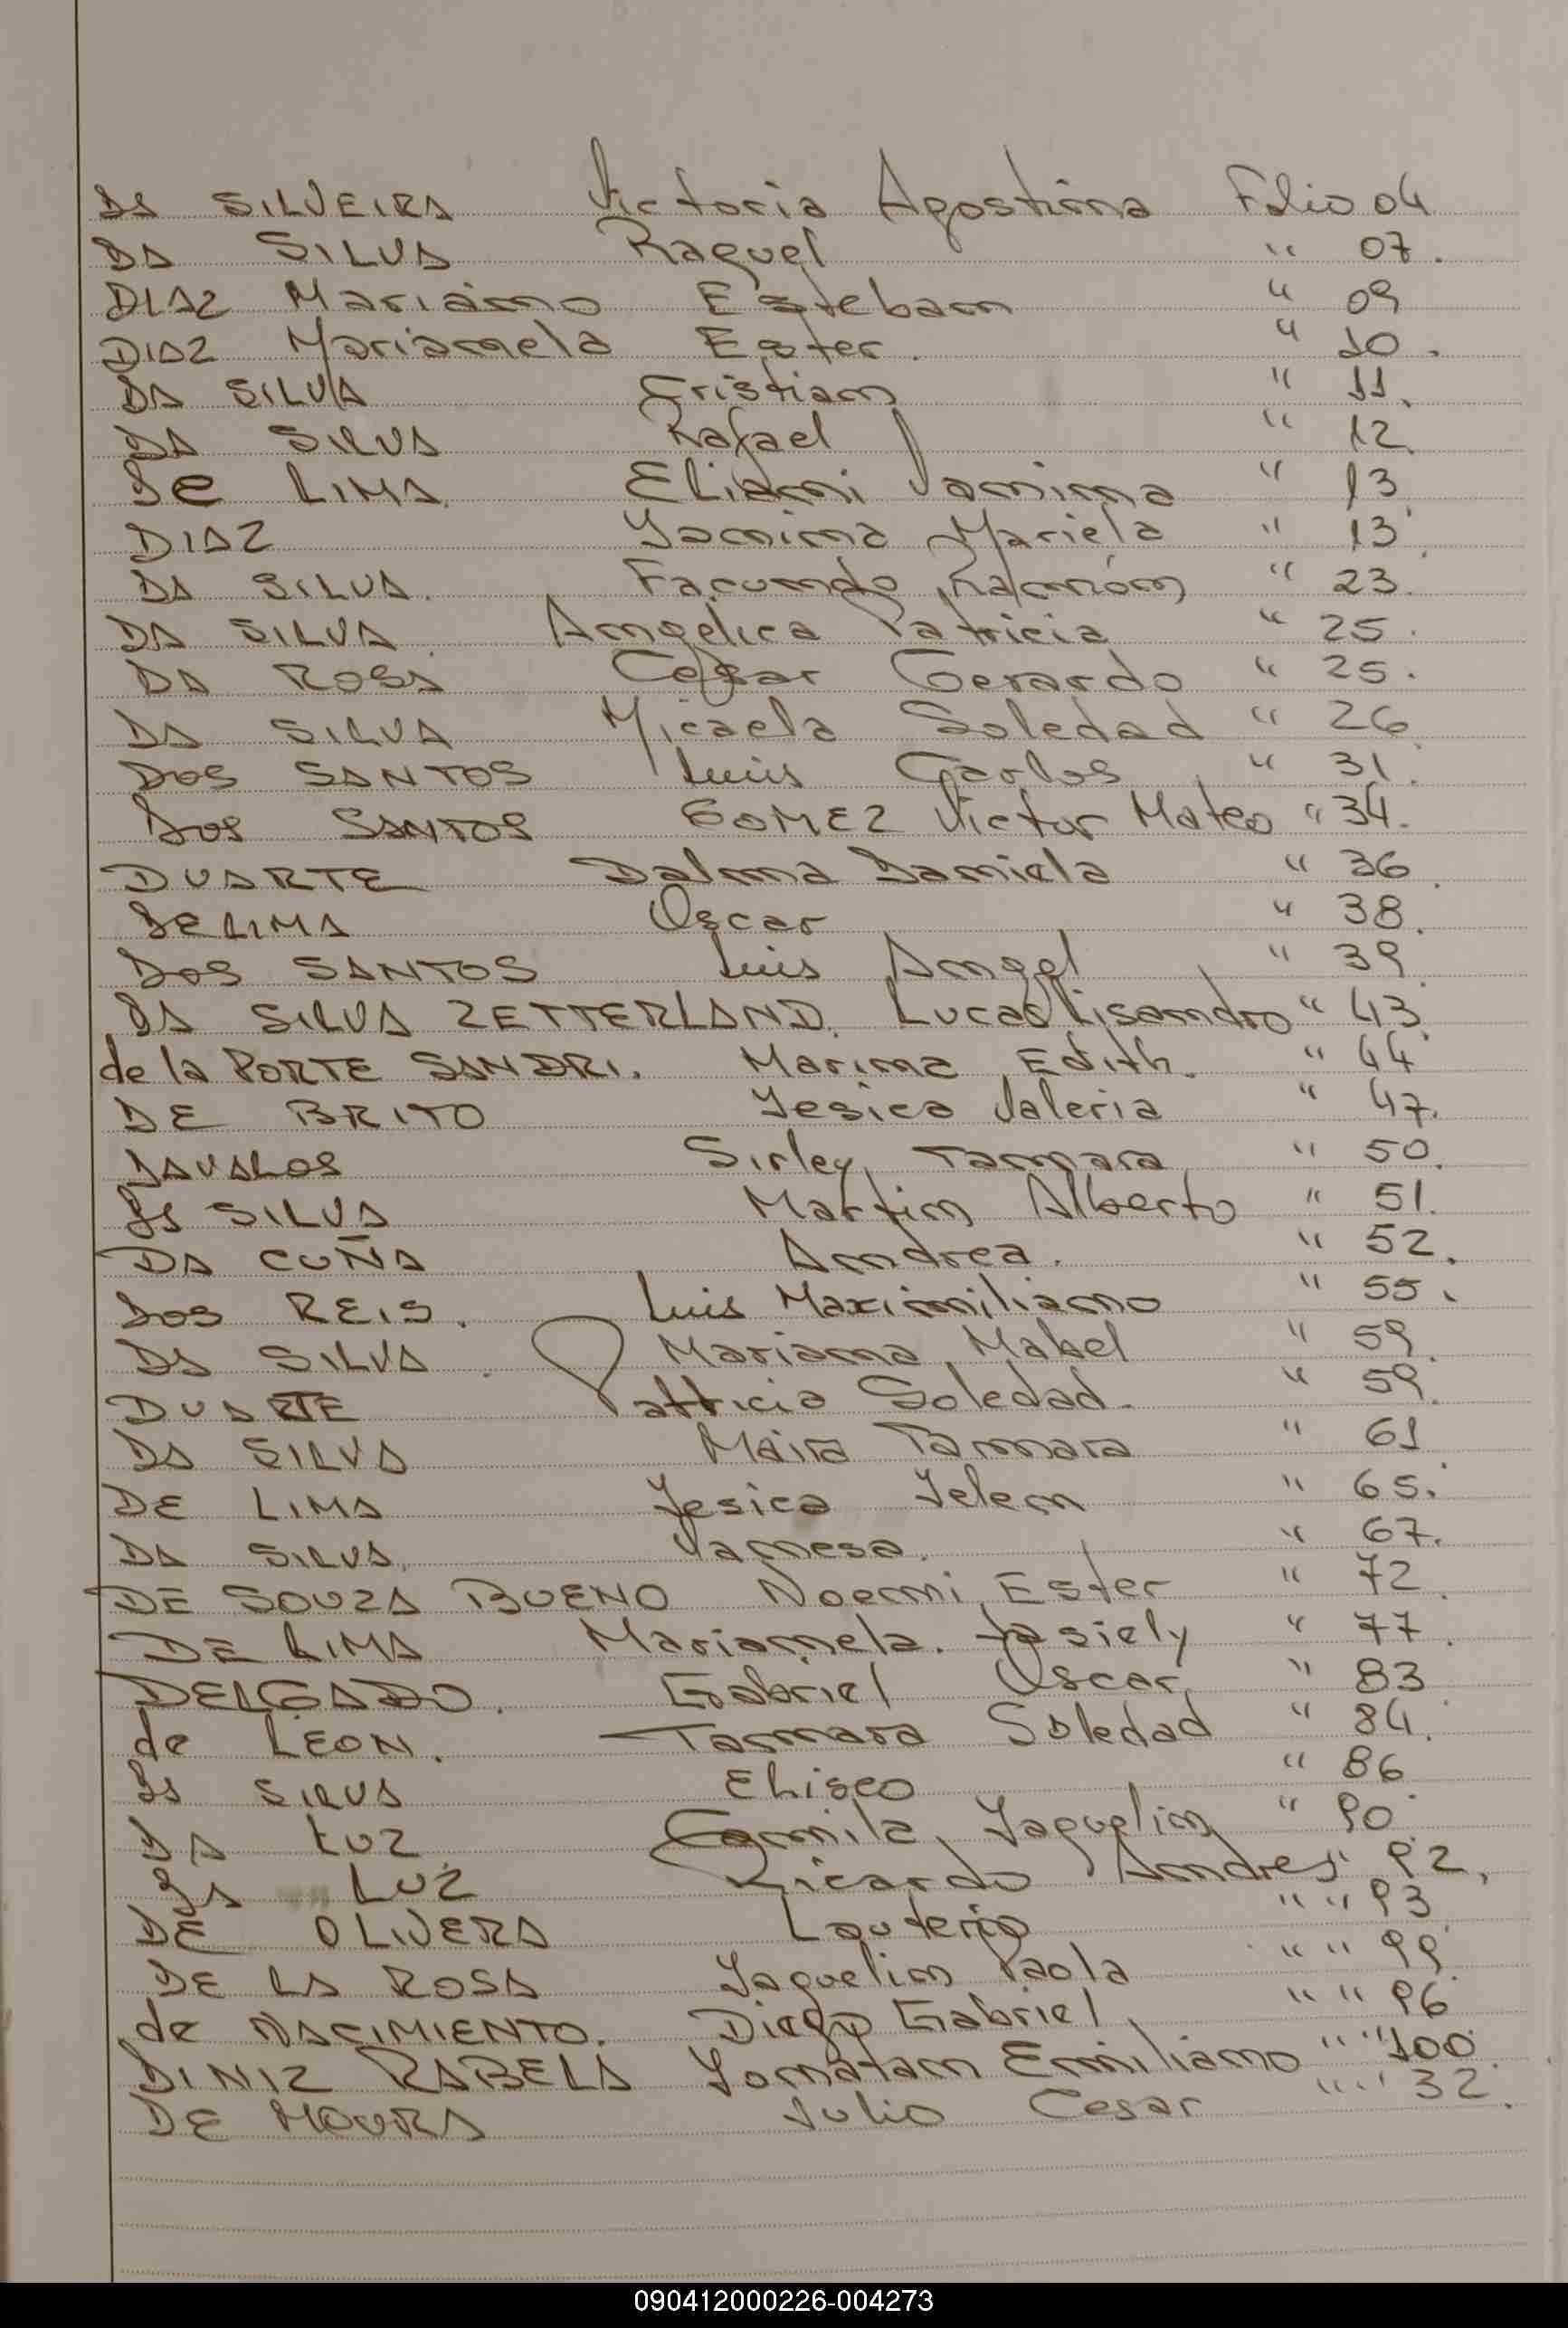 DA SILVEIRA Victoria Agostina Folio 04
DA SILVA Raquel " 07.
DIAZ Mariano Esteban " 09
DIAZ Marianela Ester. " 10.
DA SILVA Cristian " 11.
DA SILVA Rafael " 12.
De LIMA Eliani Vanina " 13.
DIAZ Yanina Mariela " 13.
DA SILVA. Facundo Ramón " 23.
DA SILVA Angelica Patricia " 25.
DA ROSA Cesar Gerardo " 25.
DA SILVA Micaela Soledad " 26.
DOS SANTOS Luis Carlos " 31.
DOS SANTOS GOMEZ Victor Mateo " 34.
DUARTE Dalma Daniela " 36.
DE LIMA Oscar " 38.
DOS SANTOS Luis Angel " 39.
DA SILVA ZETTERLAND. Lucas Lisandro " 43.
de la PORTE SANDRI. Marina Edith. " 44
DE BRITO Yesica Valeria " 47.
DAVALOS Sirley Tamara " 50.
DA SILVA Martin Alberto " 51.
DA CUÑA Andrea. " 52.
DOS REIS. Luis Maximiliano " 55.
DA SILVA. Mariana Mabel " 59.
DUARTE Patricia Soledad. " 59.
DA SILVA Maira Tamara " 61
DE LIMA Yesica Yelen " 65.
DA SILVA. Vanesa. " 67.
DE SOUZA BUENO Noemi Ester " 72.
DE LIMA Marianela. Jasiely " 77.
DELGADO. Gabriel Oscar " 83
de LEON. Tamara Soledad " 84.
DA SILVA Eliseo " 86
DA LUZ Camila Yaquelin " 90.
DA LUZ Ricardo Andres 92,
DE OLIVERA Lauterio " " 93.
DE LA ROSA Yaquelin Paola " " 99.
de NACIMIENTO. Diego Gabriel " " 96
DINIZ RABELA Yonatan Emiliano " " 100.
DE MOURA Julio Cesar " " 32.
090412000226-004273